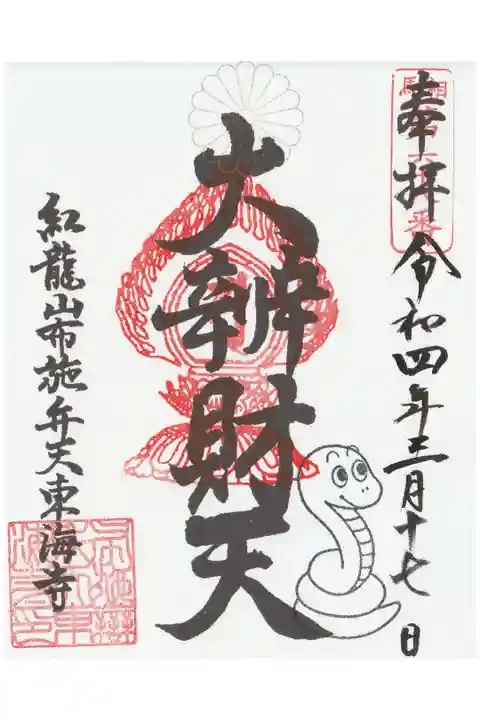 奉拝 令和四年三月十七日
大辨財天
紅龍山布施弁天東海寺